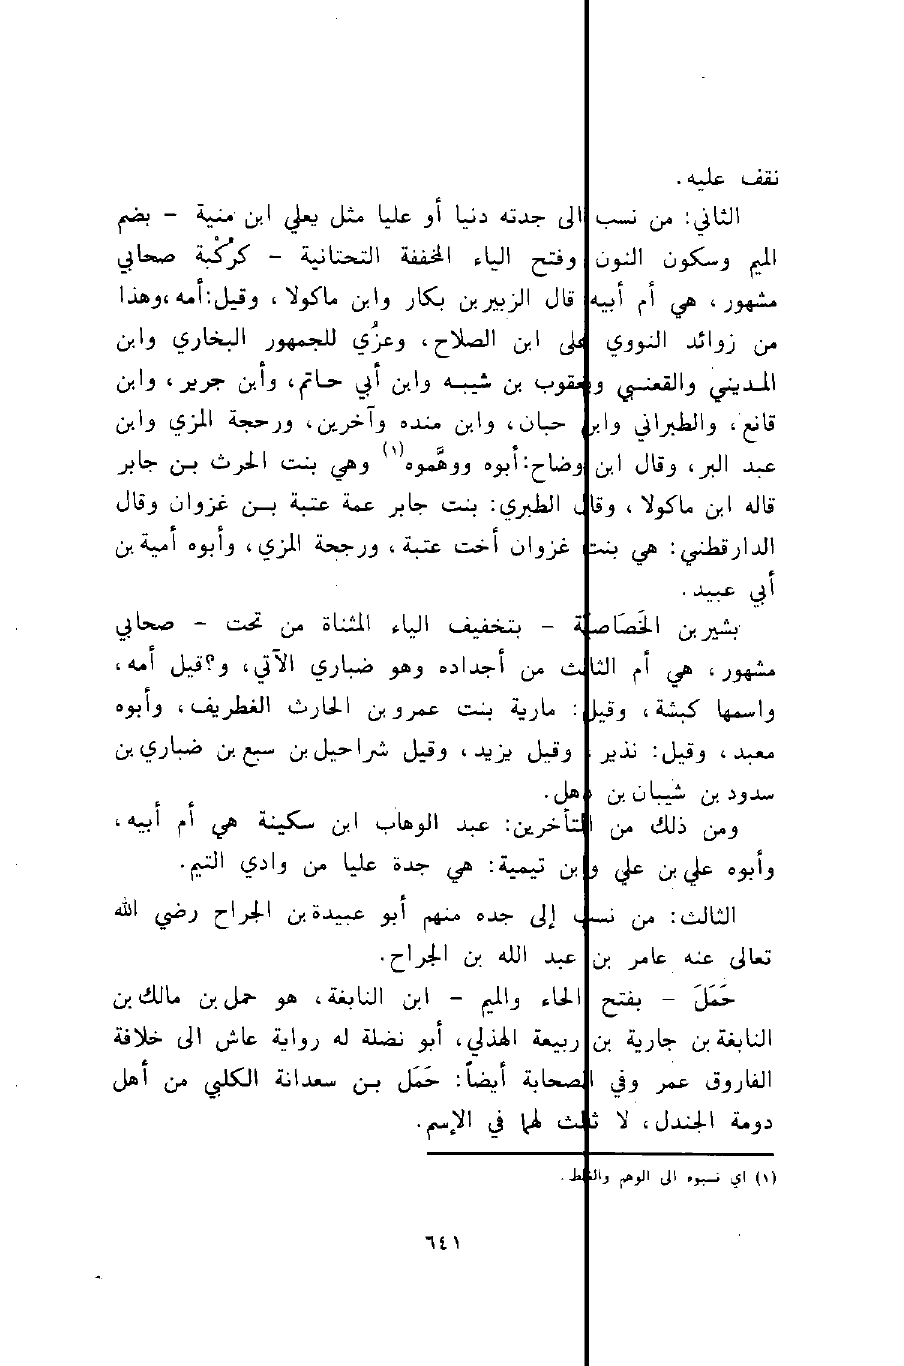 نقف عليه .
الثاني : من نسب الى جدته دنيا أو عليا مثل يعلي ابن منية – بضم
الميم وسكون النون وفتح الياء المخففة التحتانية – كرُكْبة صحابي
مشهور ، هي أم أبيه قال الزبير بن بكار وابن ماكولا ، وقيل : أمه ، وهذا
من زوائد النووي على ابن الصلاح ، وعزُي للجمهور البخاري وابن
المديني والقعنبي ويعقوب بن شيبه وابن أبي حاتم ، وأبن جرير ، وابن
قانع ، والطبراني وابن حبان ، وابن منده وآخرين ، ورحجة المزي وابن
عبد البر ، وقال ابن وضاح : أبوه ووهَّموه (١) وهي بنت الحرث بن جابر
قاله ابن ماكولا ، وقال الطبري : بنت جابر عمة عتبة بن غزوان وقال
الدارقطني : هي بنت غزوان أخت عتبة ، ورجحة المزي ، وأبوه أمية بن
أبي عبيد .
بشير بن الخَصَاصية – بتخفيف الياء المثناة من تحت – صحابي
مشهور ، هي أم الثالث من أجداده وهو ضباري الآتي ، و؟قيل أمه ،
واسمها كبشة ، وقيل : مارية بنت عمرو بن الحارث الغطريف ، وأبوه
معبد ، وقيل : نذير ، وقيل يزيد ، وقيل شراحيل بن سبع بن ضباري بن
سدود بن شيبان بن ذهل .
ومن ذلك من المتأخرين : عبد الوهاب ابن سكينة هي أم أبيه ،
وأبوه علي بن علي وابن تيمية : هي جدة عليا من وادي التيم .
الثالث : من نسب إلى جده منهم أبو عبيدة بن الجراح رضي الله
تعالى عنه عامر بن عبد الله بن الجراح .
حَمَلَ – بفتح الحاء والميم – ابن النابغة ، هو حمل بن مالك بن
النابغة بن جارية بن ربيعة الهذلي ، أبو نضلة له رواية عاش الى خلافة
الفاروق عمر وفي الصحابة أيضاً : حَمَل بن سعدانة الكلبي من أهل
دومة الجندل ، لا ثالث لهما في الإسم .
(١) اي نسبوه الى الوهم والغلط .
٦٤١